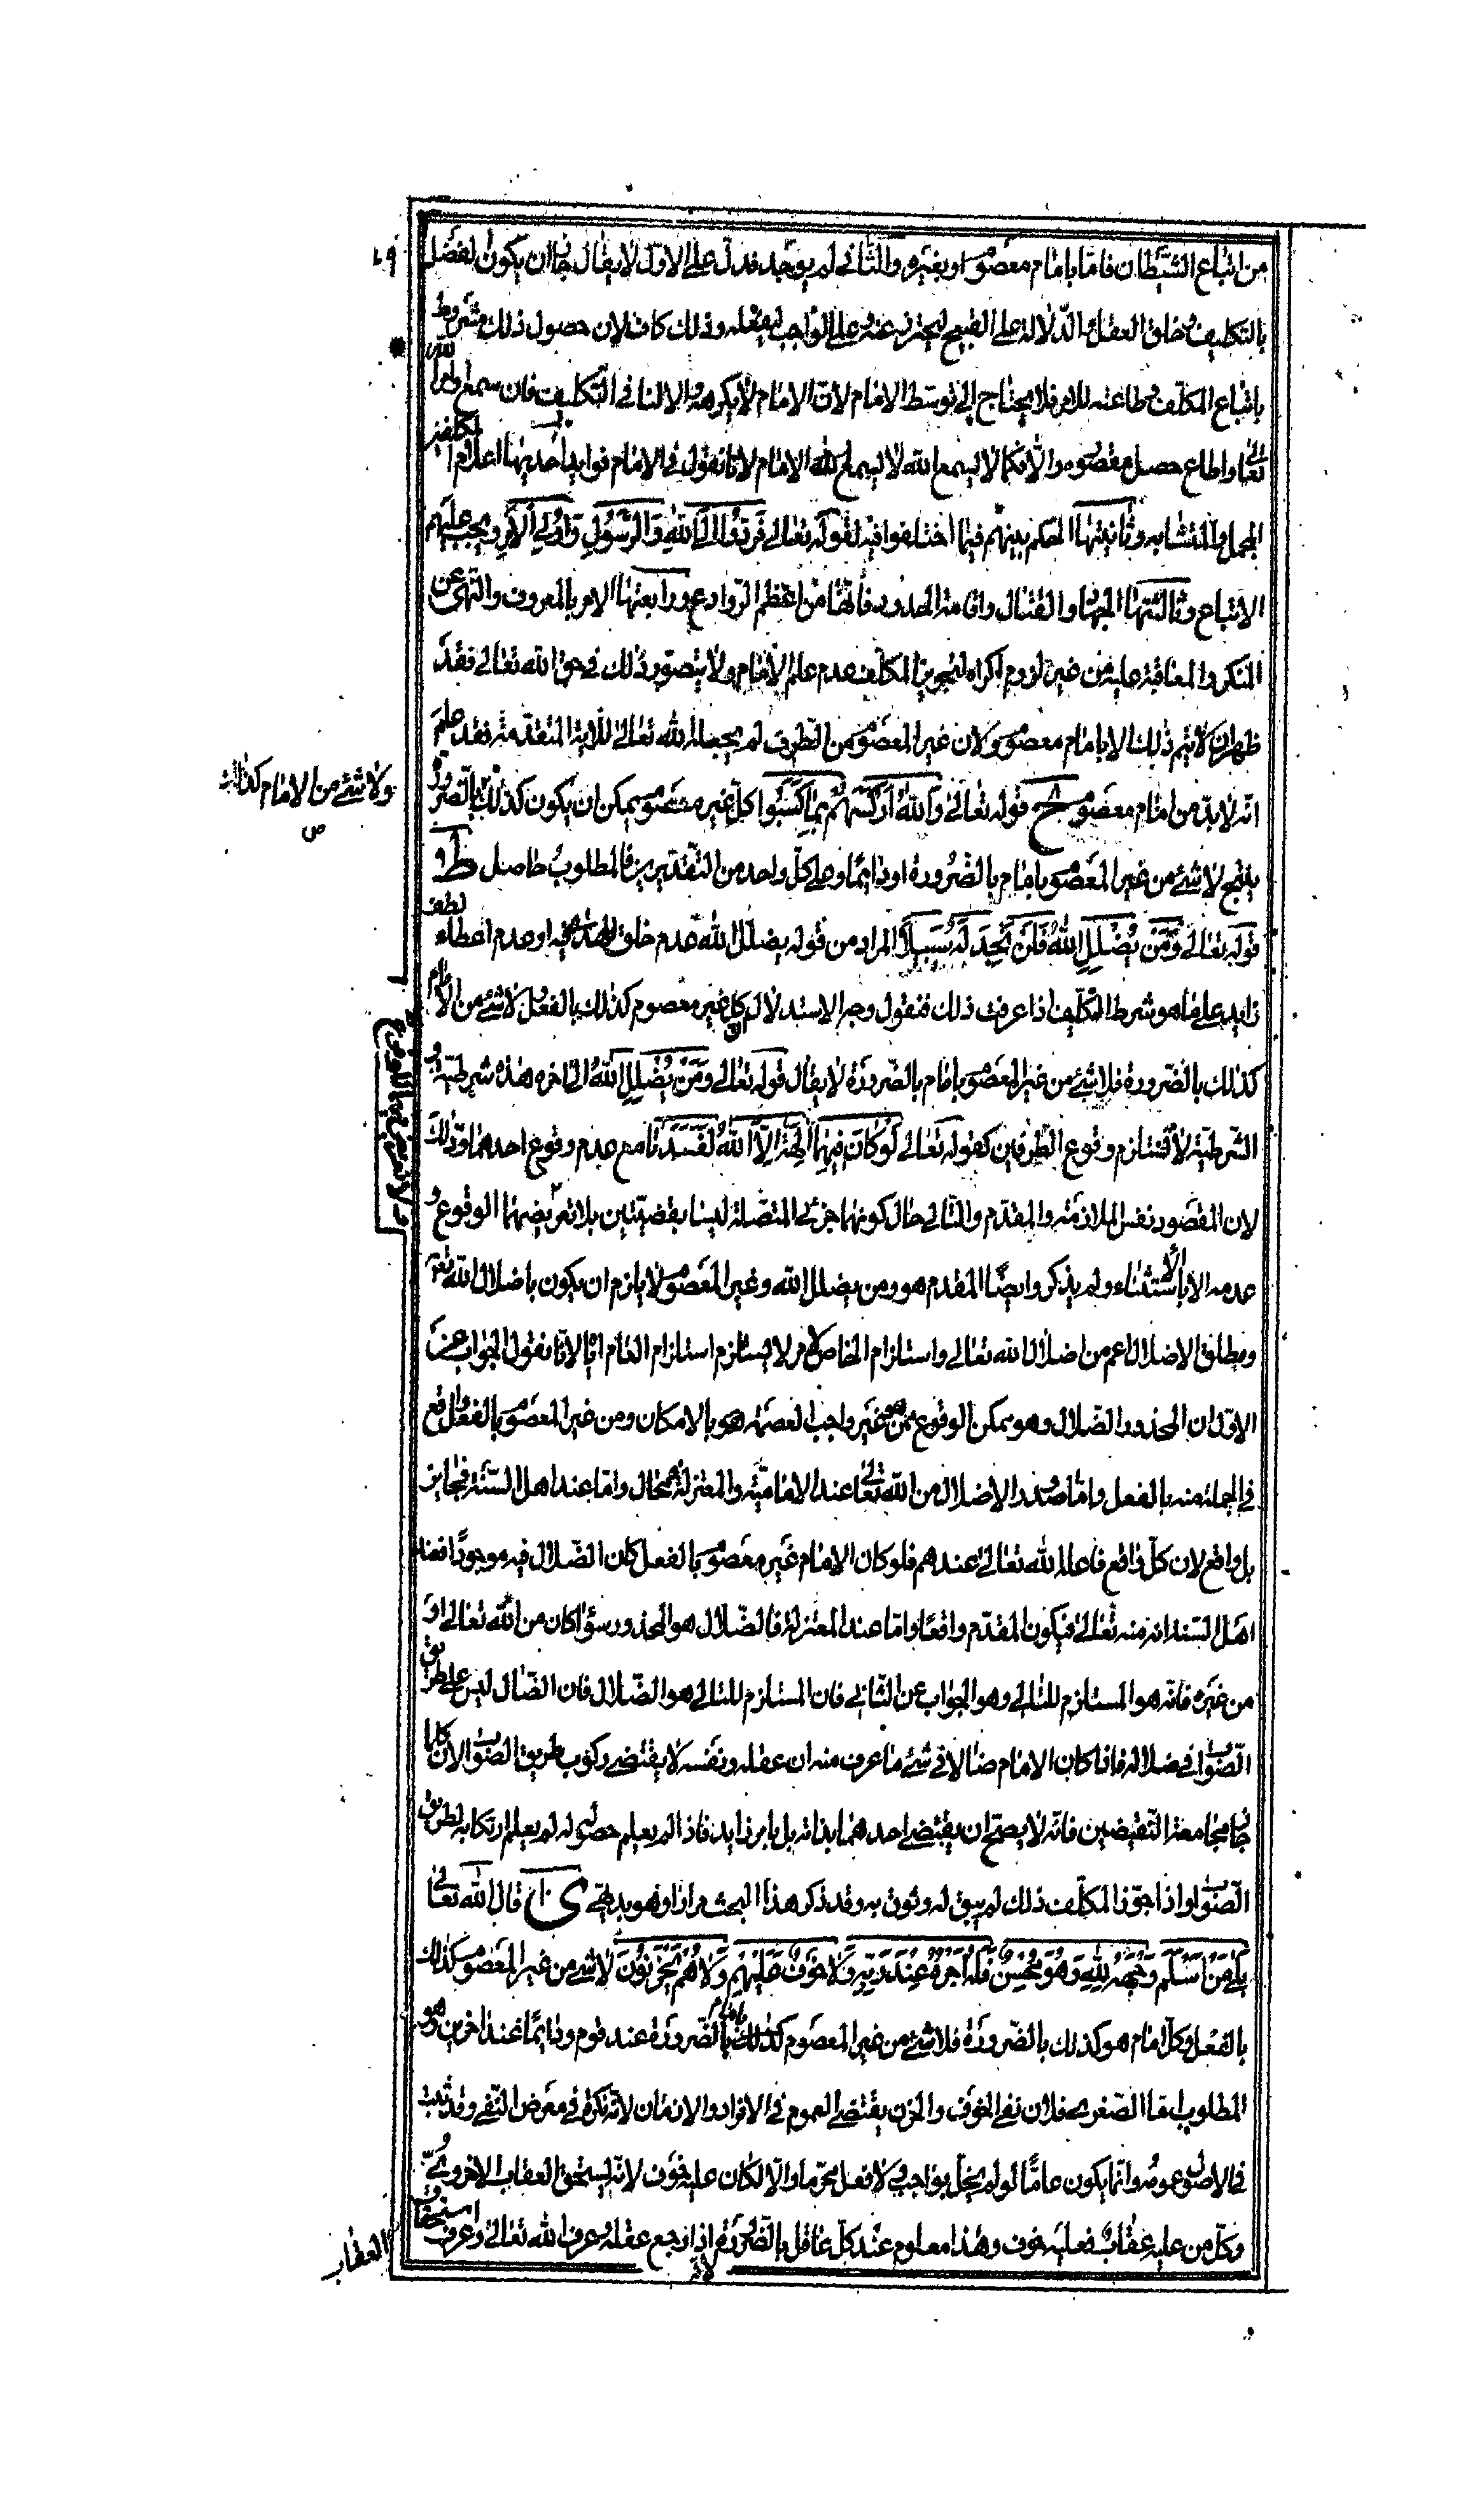 من اتباع الشيطان فاما بامام معصوم او بغيره والثاني لم يوجد فدل على الاول لا يقال جاز ان يكون لفضل
بالتكليف وخلق العقل والدلالة على القبيح ليحترز عنه وعلى الواجب ليفعله وذلك كاف لان حصول ذلك مشروط
باتباع المكلف وطاعته للامر فلا يحتاج الى توسط الامام لان الامام لا يكرهه والالنافى التكليف فان سمع امر الله
تعالى واطاع حصل مقصوده والا فكما لا يسمع الله لا يسمع الامام لانا نقول في الامام فوايد احديها اعلام المكلفين
المجمل والمتشابه وثانيتها الحكم بينهم فيما اختلفوا فيه لقوله تعالى فردوه الى الله والرسول واولي الامر ويجب عليهم
الاتباع وثالثتها الجهاد والقتال واقامة الحدود فانها من اعظم الروادع ورابعتها الامر بالمعروف والنهى عن
المنكر والمعاقبة عليه من غير لزوم اكراه لتجويز المكلف عدم علم الامام ولا يتصور ذلك في حق الله تعالى فقد
ظهر ان لا يتم ذلك الا بامام معصوم ولان غير المعصوم من الطرق لم يجعله الله تعالى للاية المتقدمة فقد علم
انه لا بد من امام معصوم ح قوله تعالى والله اركسهم بما كسبوا كل غير معصوم يمكن ان يكون كذلك بالضرورة
ولا شئ من الامام كذلك
ص
ينتج لا شئ من غير المعصوم بامام بالضرورة او دايما وعلى كل واحد من التقديرين فالمطلوب حاصل ط
قوله تعالى ومن يضلل الله فلن تجد له سبيلا المراد من قوله يضلل الله عدم خلق الهداية فيه او عدم اعطاء لطف
زايد على ما هو شرط التكليف اذا عرفت ذلك فنقول وجه الاستدلال ان كل غير معصوم كذلك بالفعل لا شئ من الامام
كذلك بالضرورة فلا شئ من غير المعصوم بامام بالضرورة لا يقال قوله تعالى ومن يضلل الله الى اخره هذه شرطية و
الشرطية لا تستلزم وقوع الطرفين كقوله تعالى لو كان فيهما الهة الا الله لفسدتا مع عدم وقوع احدهما وذلك
لان المقصود نفس الملازمة والمقدم والتالي حال كونهما جزئي المتصلة ليسا بقضيتين بلا تعريضهما الوقوع و
عدمه الا بالاستثناء ولم يذكر وايضا المقدم هو ومن يضلل الله وغير المعصوم لا يلزم ان يكون باضلال الله تعالى
ومطلق الاضلال اعم من اضلال الله تعالى واستلزام الخاص لامر لا يستلزم استلزام العام اياه لانا نقول الجواب عن
الاول ان المحذور الضلال وهو ممكن الوقوع ممن هو غير واجب العصمة هو بالامكان ومن غير المعصوم بالفعل واقع
في الجملة منه بالفعل واما صدور الاضلال من الله تعالى عند الامامية والمعتزلة فمحال واما عند اهل السنة فجايز
بل واقع لان كل واقع فاعله الله تعالى عندهم فلو كان الامام غير معصوم بالفعل كان الضلال فيه موجودا فعند
اهل السنة انه منه تعالى فيكون المقدم واقعا واما عند المعتزلة فالضلال هو المحذور سواء كان من الله تعالى او
من غيره فانه هو المستلزم للتالي وهو الجواب عن الثاني فان المستلزم للتالي هو الضلال فان الضال ليس على طريق
الصواب في ضلاله فاذا كان الامام ضالا في شئ ما عرف منه ان عقله ونفسه لا يقتضي ركوب طريق الصواب لان كلما
جاز مجامعة النقيضين فانه لا يصح ان يقتضي احدهما بذاته بل بامر زايد فاذا لم يعلم حصوله لم يعلم ارتكابه لطريق
الصواب واذا جوز المكلف ذلك لم يبق له وثوق به وقد ذكر هذا البحث مرارا وهو بديهي ى قال الله تعالى
بلى من اسلم وجهه لله وهو محسن فله اجره عند ربه ولا خوف عليهم ولا هم يحزنون لا شئ من غير المعصوم كذلك
بالفعل وكل امام هو كذلك بالضرورة فلا شئ من غير المعصوم بامام بالضرورة عند قوم ودايما عند اخرين وهو
المطلوب اما الصغرى فلان نفي الخوف والحزن يقتضي العموم في الافراد والازمان لانه نكرة في معرض النفي وقد ثبت
في الاصول عمومه وانما يكون عاما لو لم يخل بواجب ولا فعل محرما والا لكان عليه خوف لانه يستحق العقاب الاخروي
وكل من عليه عقاب فعليه خوف وهذا معلوم عند كل عاقل بالضرورة اذا رجع عقله وعرف الله تعالى وعرف استحقاق
العقاب